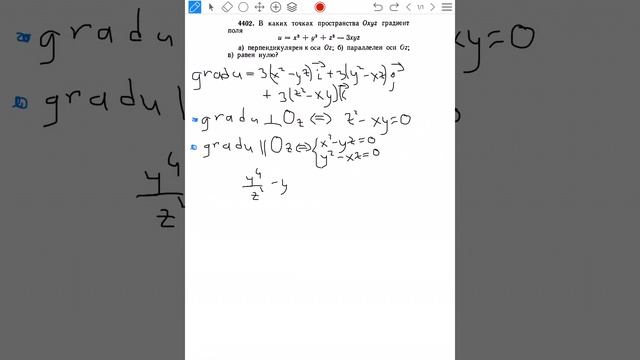 1/1
4402. В каких точках пространства Oxyz градиент
поля
u = x³ + y³ + z³ — 3xyz
а) перпендикулярен к оси Oz; б) параллелен оси Oz;
в) равен нулю?
grad u = 3(x² - yz)i + 3(y² - xz)j
+ 3(z² - xy)k
grad u ⊥ Oz ⇔ z² - xy = 0
grad u ∥ Oz ⇔ { x² - yz = 0
y² - xz = 0
y⁴/z² - y
grad u
grad u
xy = 0
y⁴